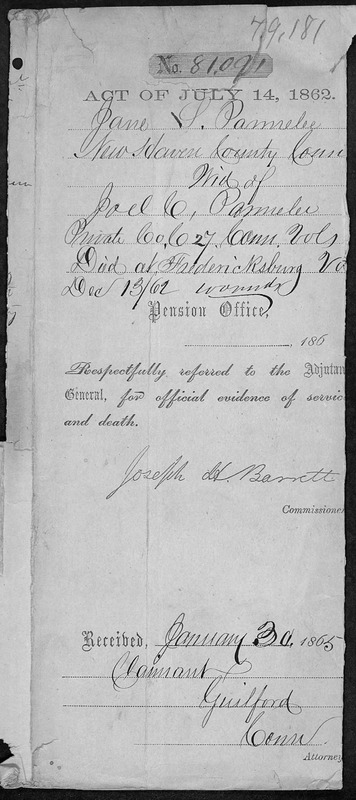 79,181
No. 81,091
ACT OF JULY 14, 1862.
Jane S. Parmelee
New Haven County Conn
Wid of
Joel C. Parmelee
Private Co, C 27, Conn. Vols
Died at Fredericksburg Va
Dec 13/62 wounds
Pension Office,
, 186
Respectfully referred to the Adjutan
General, for official evidence of servic
and death.
Joseph H. Barrett
Commissioner
Received, January 3d, 1865
Claimant
Guilford
Conn.
Attorney